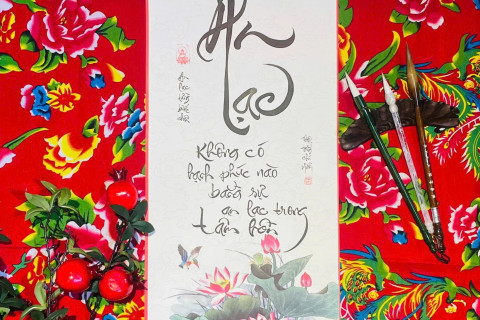 An
Lạc
Không có
hạnh phúc nào
bằng sự
an lạc trong
tâm hồn